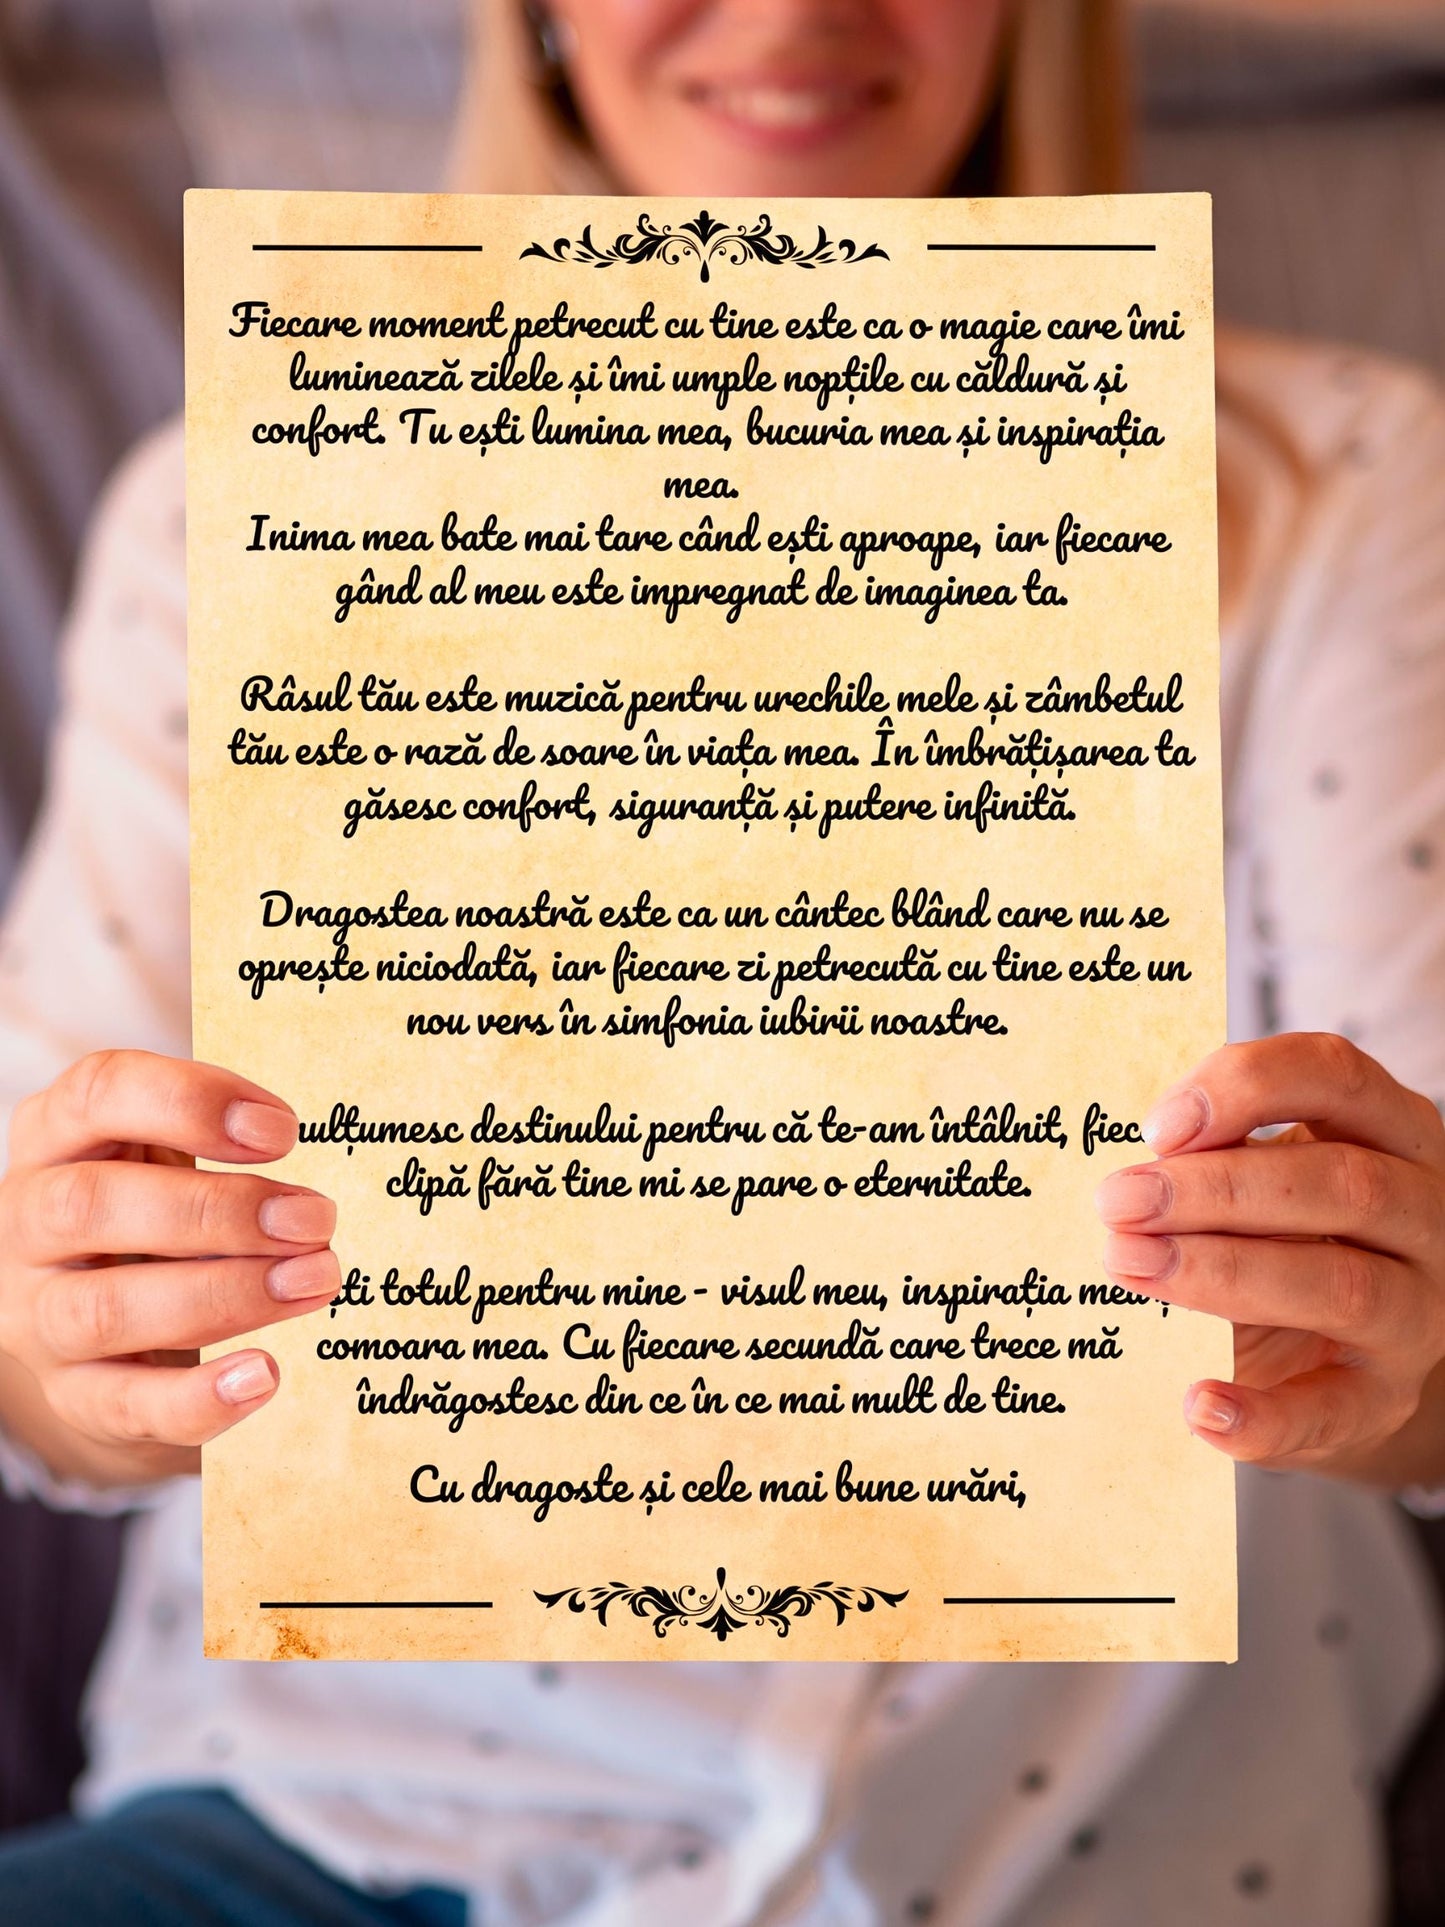 Fiecare moment petrecut cu tine este ca o magie care îmi
luminează zilele și îmi umple nopțile cu căldură și
confort. Tu ești lumina mea, bucuria mea și inspirația
mea.
Inima mea bate mai tare când ești aproape, iar fiecare
gând al meu este impregnat de imaginea ta.
Râsul tău este muzică pentru urechile mele și zâmbetul
tău este o rază de soare în viața mea. În îmbrățișarea ta
găsesc confort, siguranță și putere infinită.
Dragostea noastră este ca un cântec blând care nu se
oprește niciodată, iar fiecare zi petrecută cu tine este un
nou vers în simfonia iubirii noastre.
destinului pentru că te-am întâlnit,
clipă fără tine mi se pare o eternitate.
totul pentru mine - visul meu, inspirația mea
comoara mea. Cu fiecare secundă care trece mă
îndrăgostesc din ce în ce mai mult de tine.
Cu dragoste și cele mai bune urări,